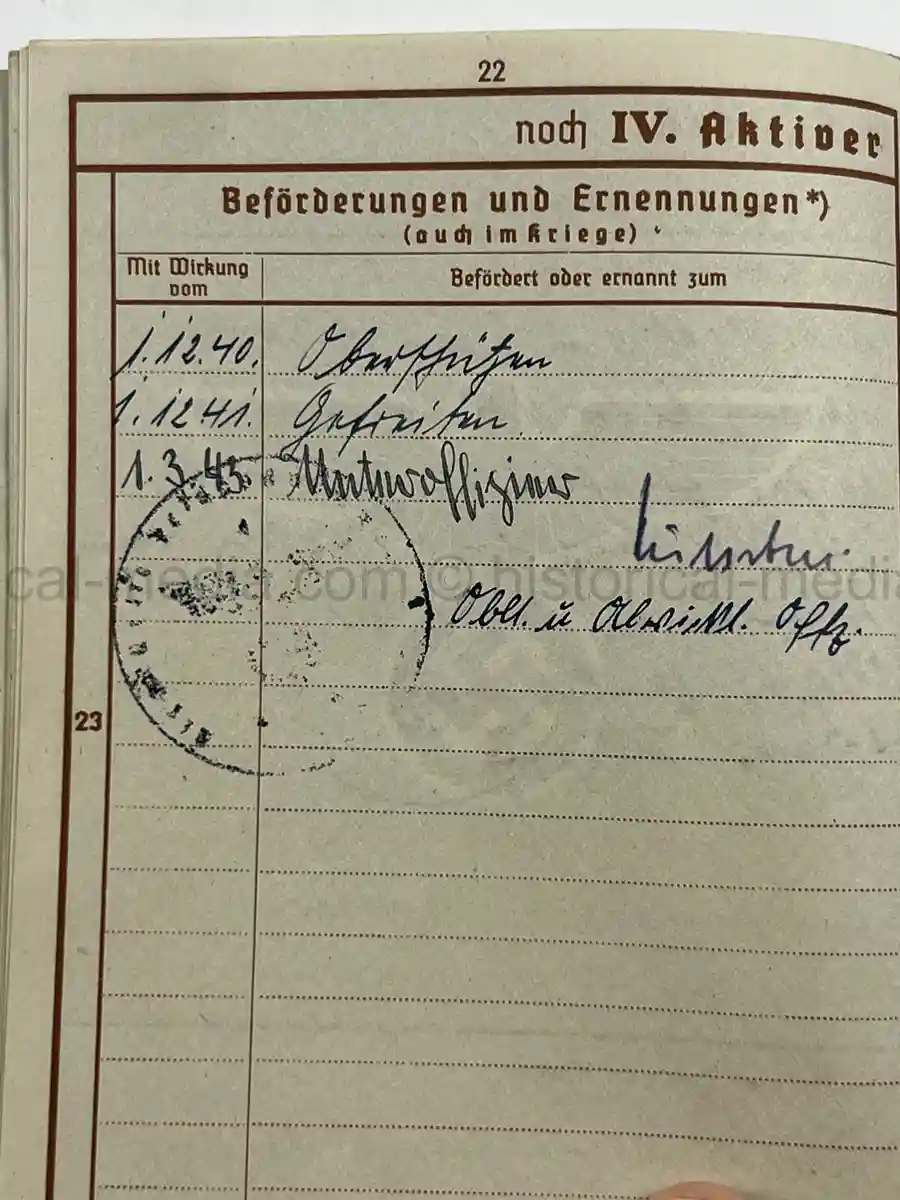 22
noch IV. Aktiver
Beförderungen und Ernennungen*)
(auch im Kriege)
Mit Wirkung
vom
Befördert oder ernannt zum
1.12.40. Oberschützen
1.12.41. Gefreiten
1.3.43. Unteroffizier
cal-media.com © historical-media
Oblt. u Abwickl. Offz.
23